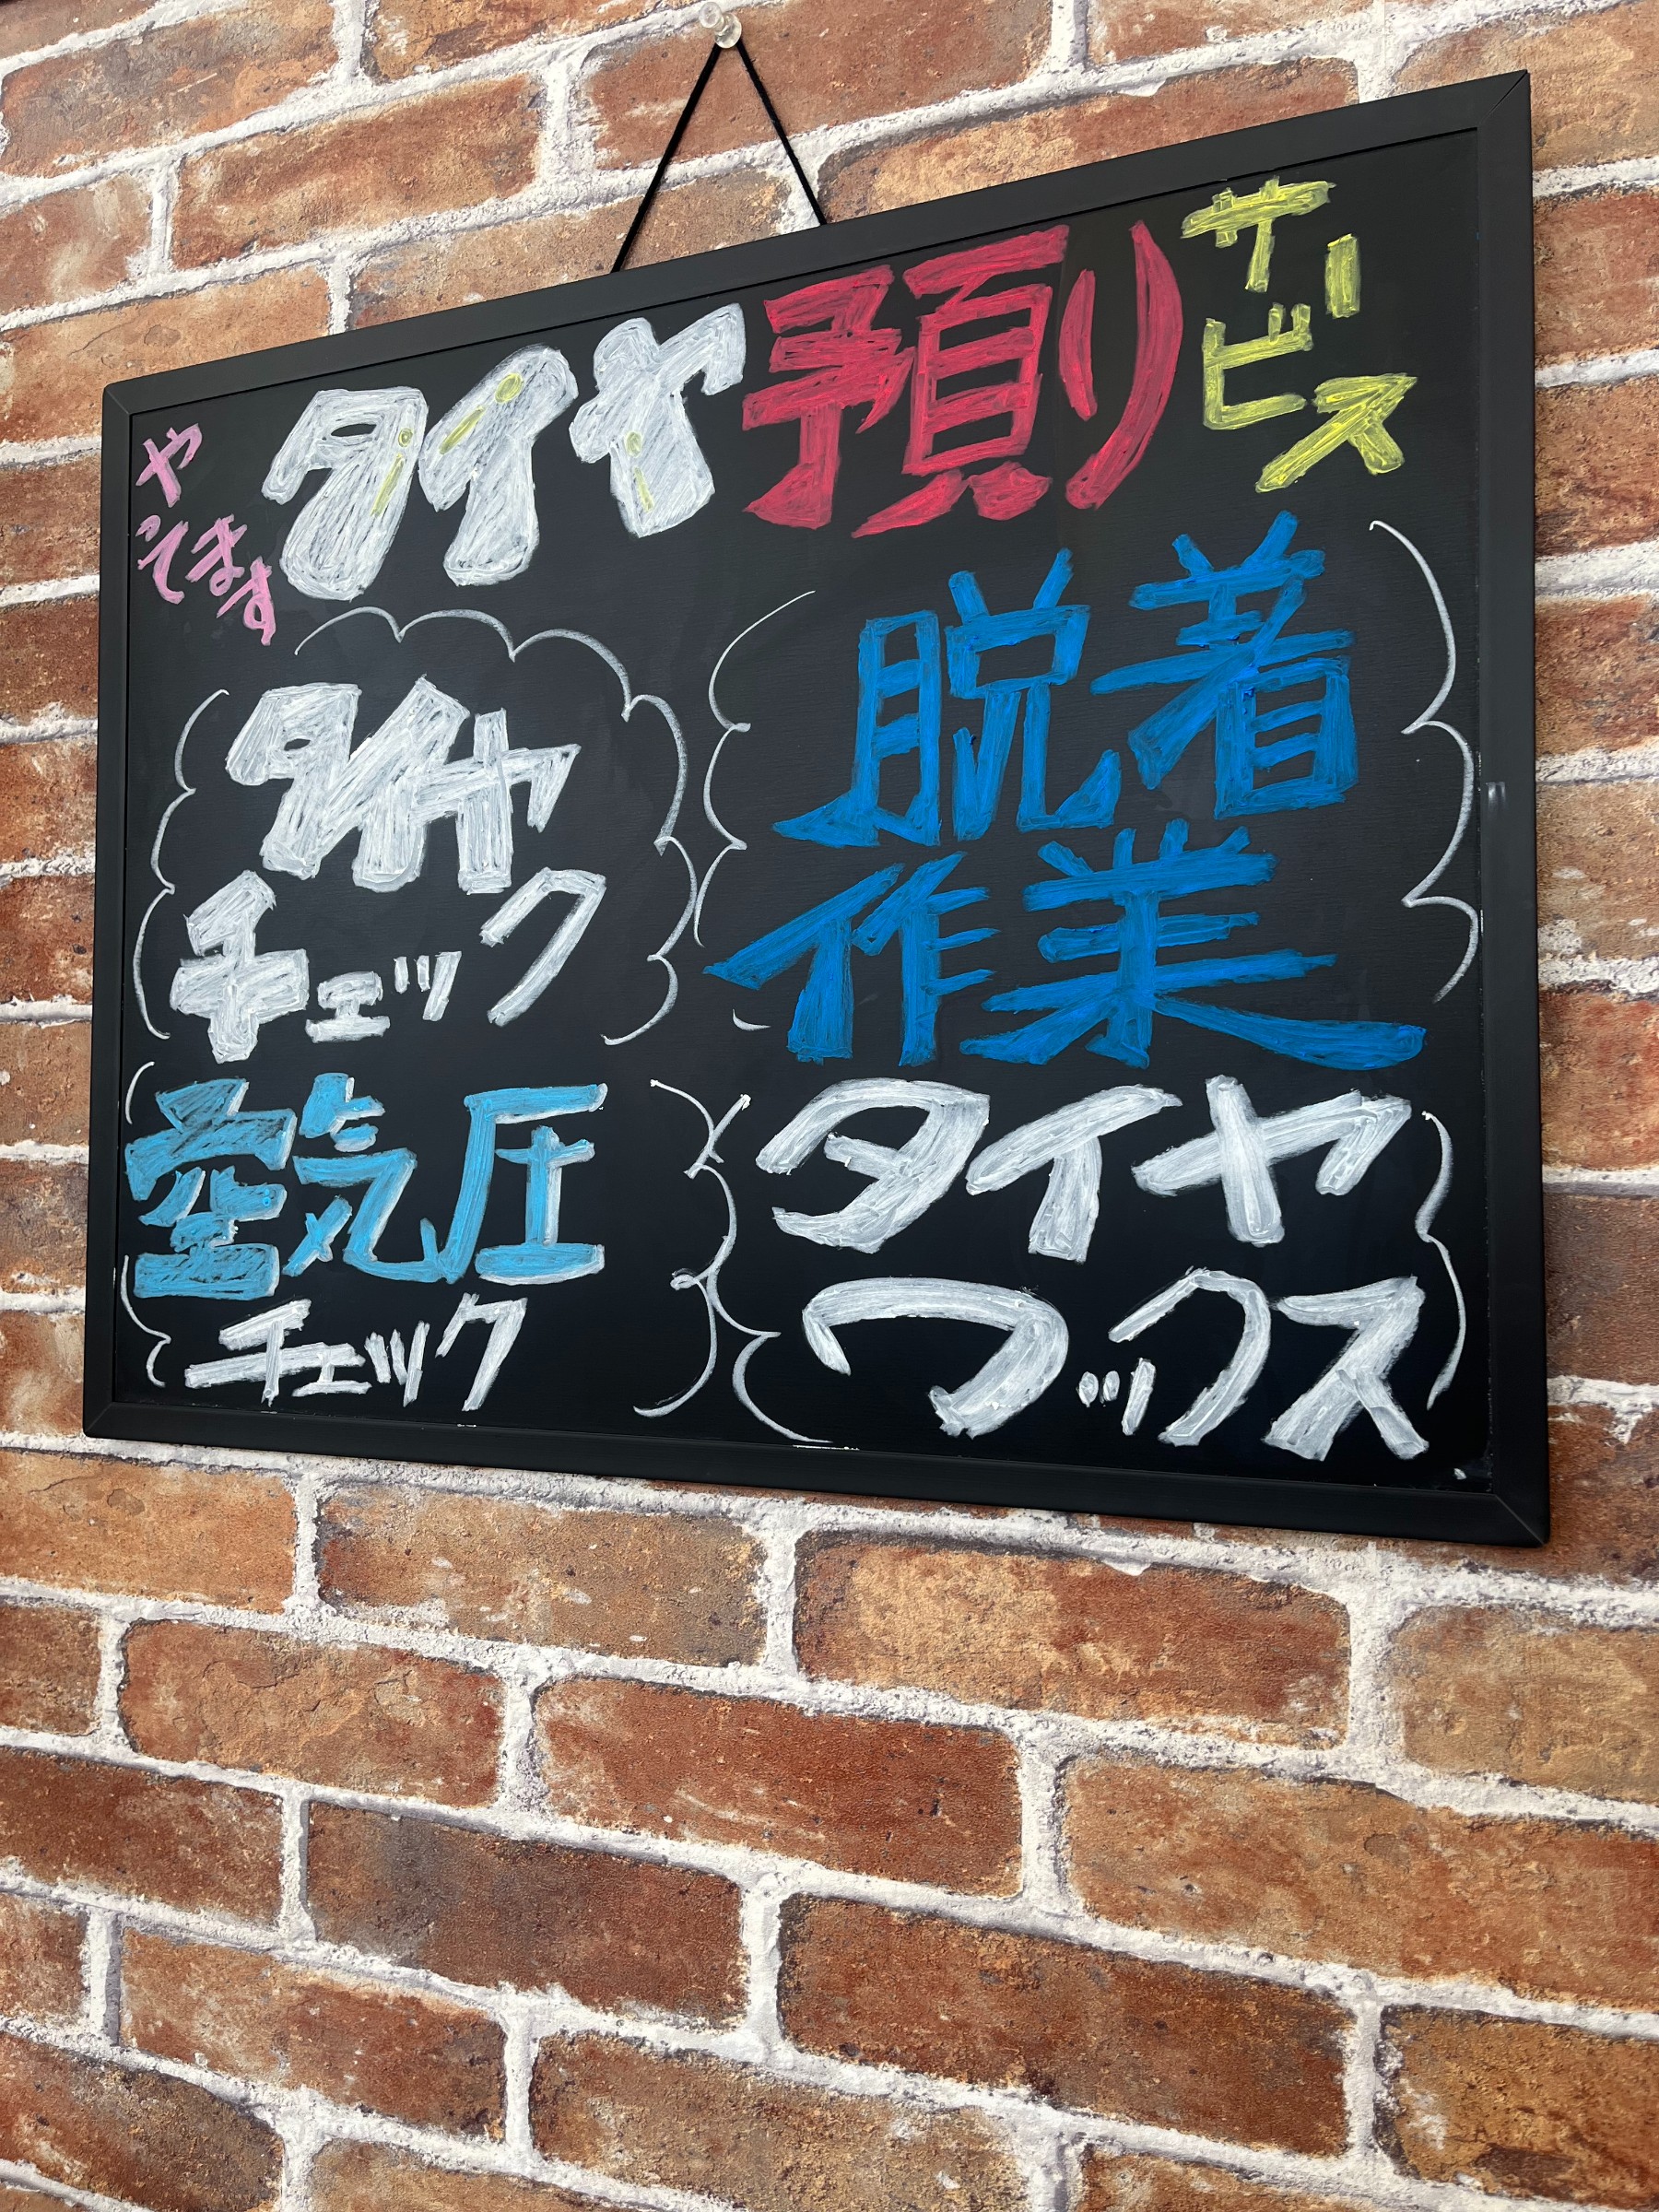 タイヤ預りサービス
やてます
脱着
作業
タイヤ
チェック
空気圧
チェック
タイヤ
ワックス